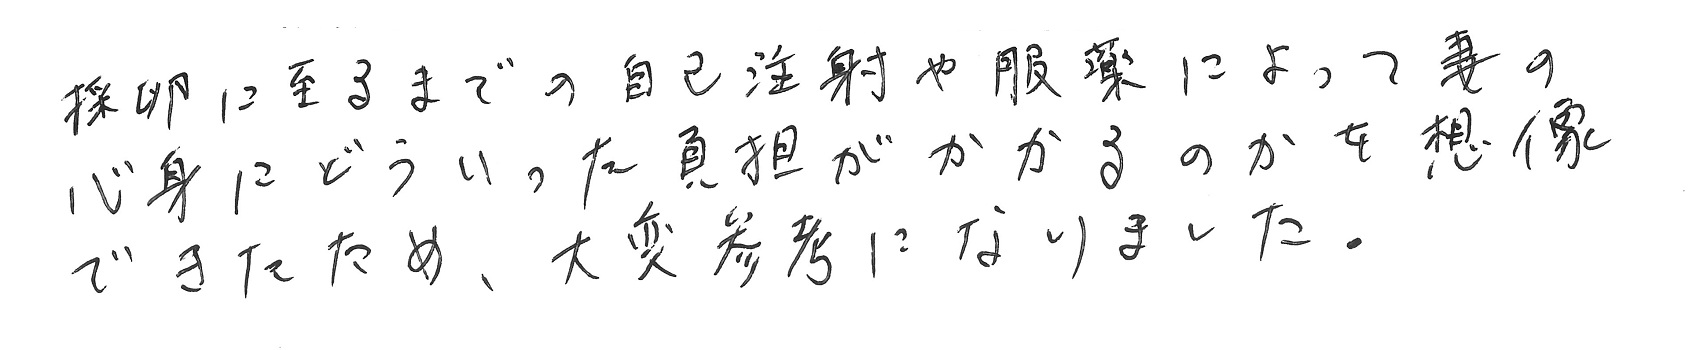 採卵に至るまでの自己注射や服薬によって妻の
心身にどういった負担がかかるのかを想像
できたため、大変参考になりました。